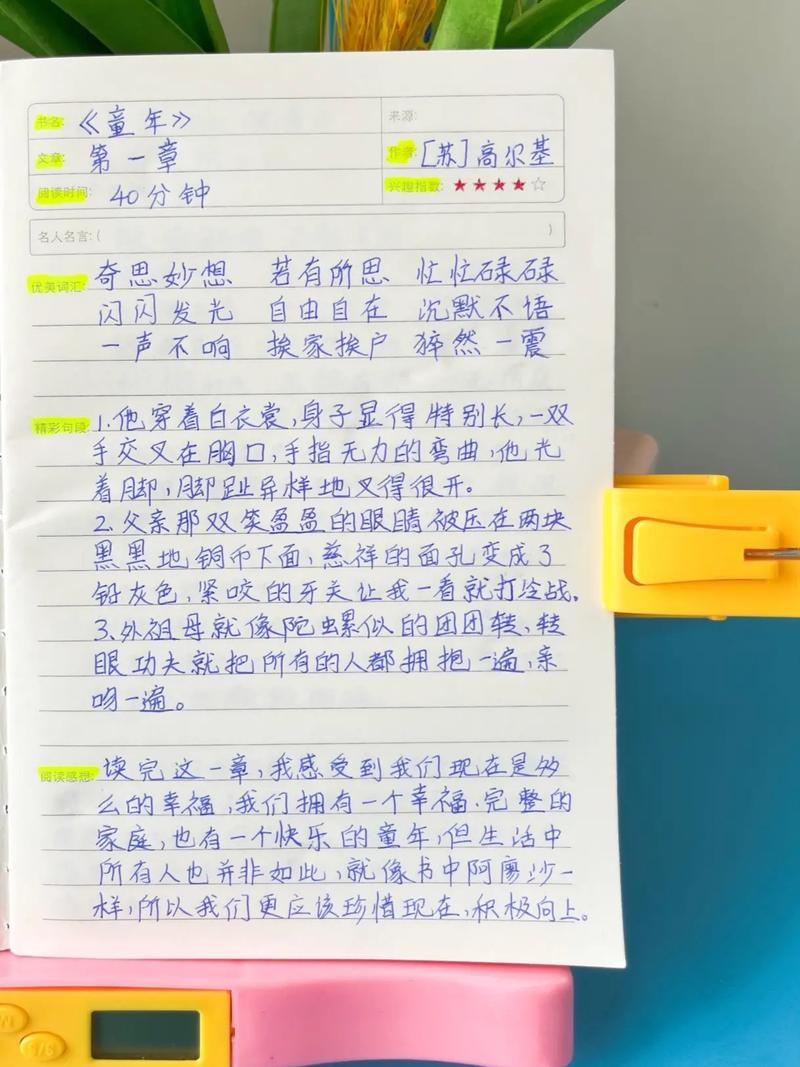 书名: 《童年》 来源:
文章: 第一章 作者: [苏]高尔基
阅读时间: 40分钟 兴趣指数: ★★★★☆
名人名言:( )
优美词汇: 奇思妙想 若有所思 忙忙碌碌
闪闪发光 自由自在 沉默不语
一声不响 挨家挨户 猝然一震
精彩句段: 1.他穿着白衣裳,身子显得特别长,一双
手交叉在胸口,手指无力的弯曲,他光
着脚,脚趾异样地叉得很开。
2.父亲那双笑盈盈的眼睛被压在两块
黑黑地铜币下面,慈祥的面孔变成了
铅灰色,紧咬的牙关让我一看就打冷战。
3.外祖母就像陀螺似的团团转、转
眼功夫就把所有的人都拥抱一遍,亲
吻一遍。
阅读感想: 读完这一章,我感受到我们现在是多
么的幸福,我们拥有一个幸福、完整的
家庭,也有一个快乐的童年,但生活中
所有人也并非如此,就像书中阿廖沙一
样,所以我们更应该珍惜现在,积极向上。
S/S